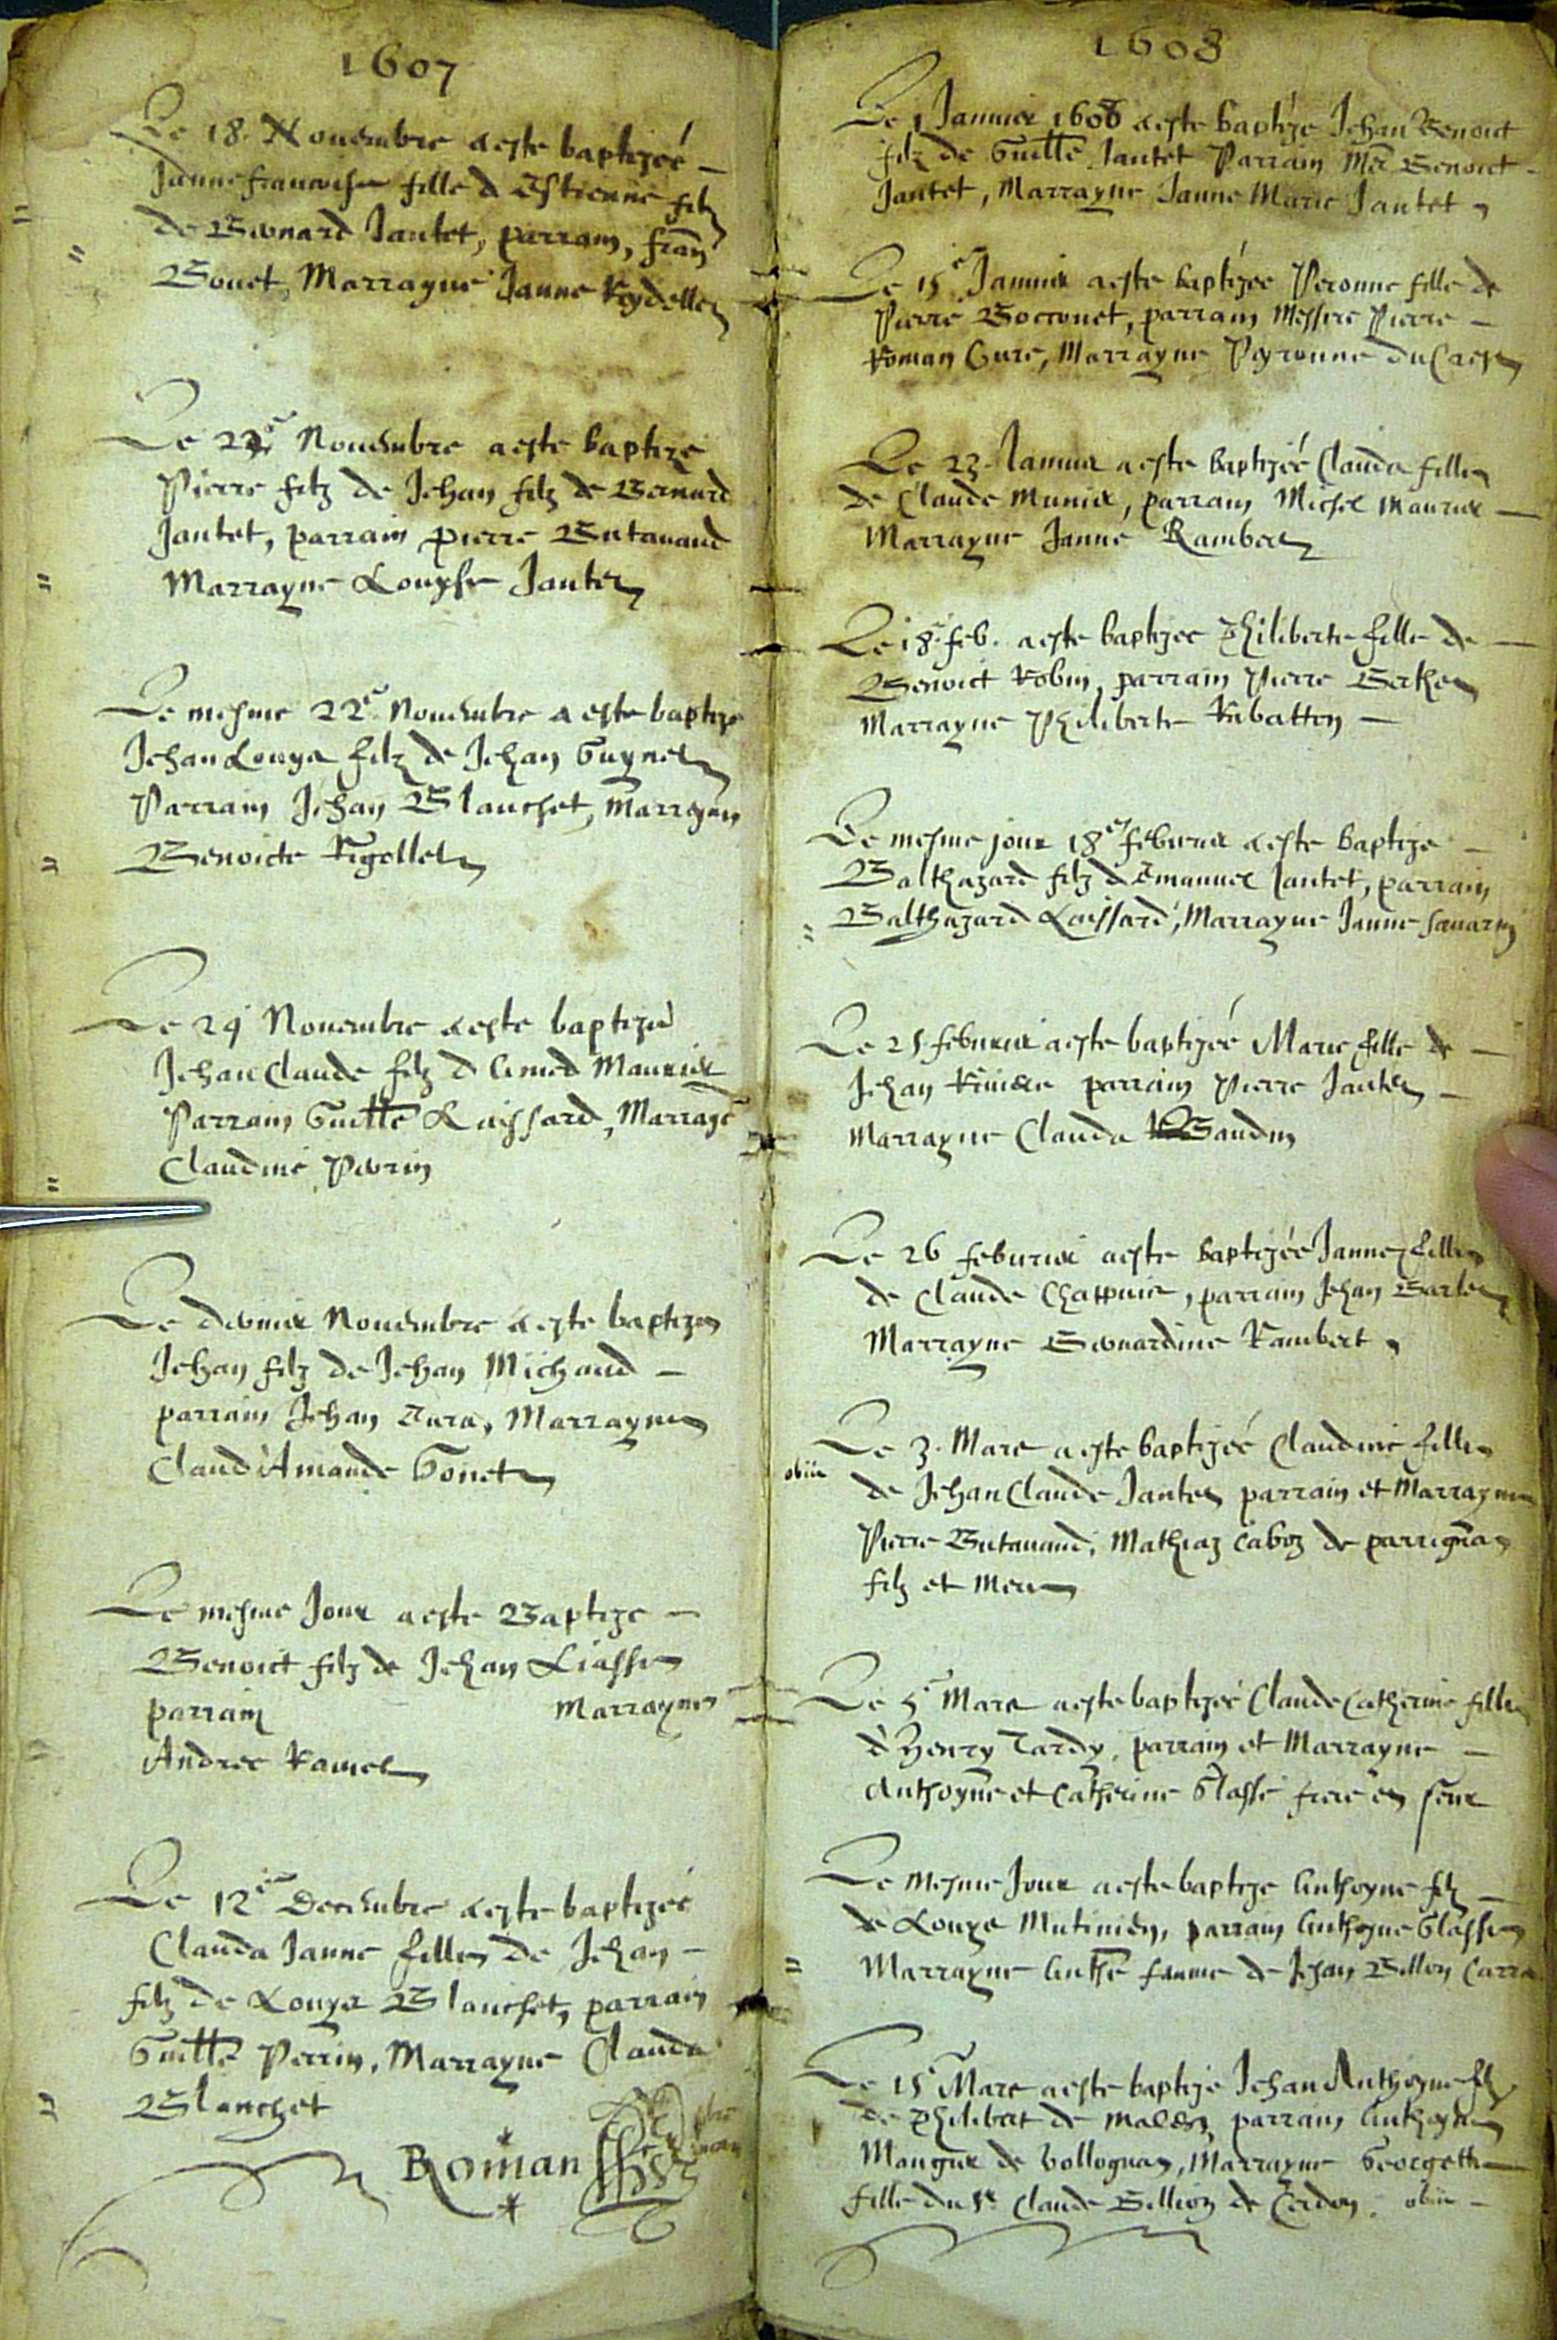 1607
Le 18. Nouembre a este baptizeé
Janne francoise fille d Estienne filz
de Bernard Jantet, parrain, fran
Bonet, Marrayne Janne Rydellet
Le 22e Nouembre a este baptize
Pierre filz de Jehan filz de Bernard
Jantet, parrain pierre Butauand
Marrayne Louyse Jantet
Le mesme 22e Nouembre a este baptize
Jehan Louys filz de Jehan Guynet
Parrain Jehan Blanchet, Marrayne
Benoicte Rigollet
Le 24 Nouembre a este baptize
Jehan Claude filz d Aimed Maurier
Parrain Guille Laissard, Marraye
Claudine Perrin
Le dernier Nouembre a este baptize
Jehan filz de Jehan Michaud
parrain Jehan Marrayne
Claud'Amande Gonet
Le mesme Jour a este Baptize
Benoict filz de Jehan Liasse
parrain Marrayne
Andree Ramel
Le 12e Decembre a este baptizeé
Clauda Janne fille de Jehan
filz de Louys Blanchet, parrain
Guille Perrin, Marrayne Clauda
Blanchet
Roman
1608
Le 1 Januier 1608 a este baptize Jehan Benoict
filz de Guille Jantet Parrain Mre Benoict
Jantet, Marrayne Janne Marie Jantet
Le 15e Januier a este baptizee Peronne fille de
Pierre Bocconet, parrain Messire Pierre
Roman Cure, Marrayne Peyronne du Crest
Le 23 Januier a este baptizeé Clauda fille
de Claude Munier, parrain Michel Maurier
Marrayne Janne Rambert
Le 18e feb. a este baptizee Philiberte fille de
Benoict Robin, parrain Pierre Berthet
Marrayne Philiberte Rabatton
Le mesme jour 18e feburier a este baptize
Balthazard filz d Emanuel Jantet, parrain
Balthazard Laissard, Marrayne Janne Sauarin
Le 25 feburier a este baptizeé Marie fille de
Jehan Riuiere parrain Pierre Jantet
Marrayne Clauda Baudin
Le 26 feburier a este baptizeé Janne fille
de Claude Chappuis, parrain Jehan Barlet
Marrayne Bernardine Rambert
Le 3. Mars a este baptizeé Claudine fille
obiit
de Jehan Claude Jantet parrain et Marrayne
Pierre Butauand, Mathiaz Caboz de parrignan
filz et Mere
Le 5e Mars a este baptizeé Claude Catherine fille
d'Henry Tardy, parrain et Marrayne
Anthoyne et Catherine Glasse frere et seur
Le Mesme Jour a este baptize Anthoyne filz
de Louys Mutinier, parrain Anthoyne Glasse
Marrayne Anthe femme de Jehan Billon Carra
Le 15e Mars a este baptize Jehan Anthoyne filz
de Philibert de parrain Anthoyne
Mangier de bollognan, Marrayne Georgette
fille du Sr Claude Billion de Cerdon. obiit